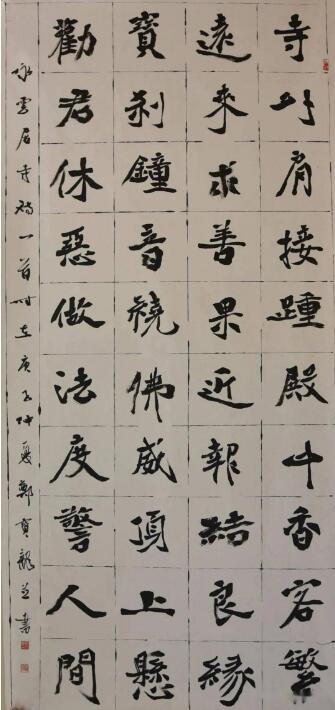 寺外肩接踵殿中香客繁
遠來求善果近報結良緣
寶刹鐘音繞佛威頂上懸
勸君休惡做法度警人間
詠雲居寺詩一首時在庚子仲夏鄭並書